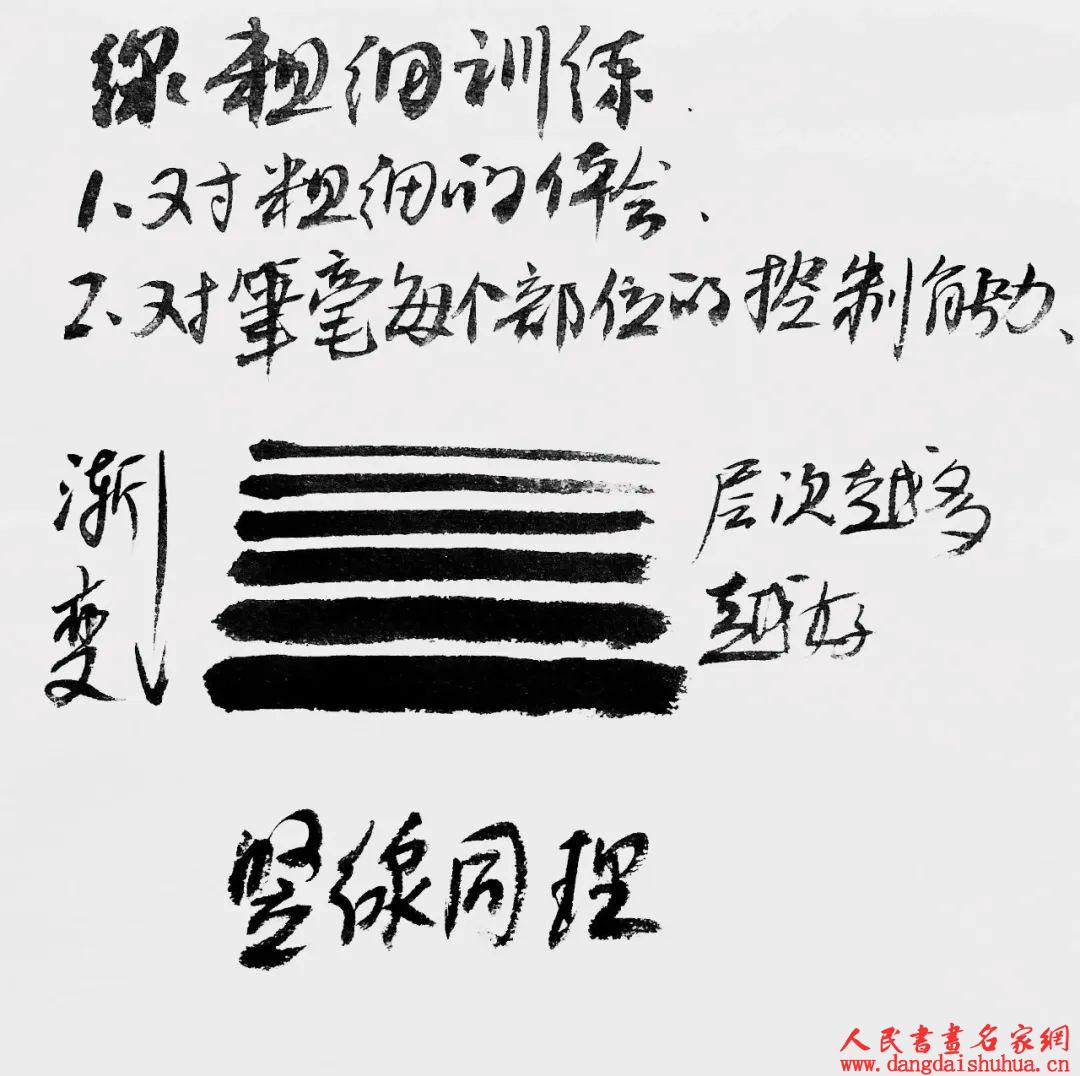 線粗细训练.
1、对粗细的体会、
2、对筆毫每个部位的控制能力、
渐变
层次越多
越好
竖線同理
人民書畫名家網
www.dangdaishuhua.cn